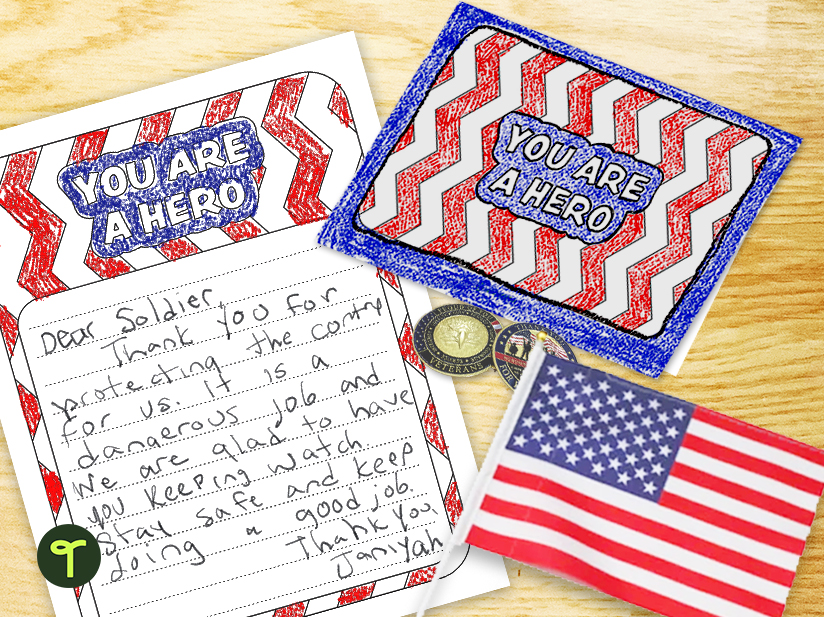 YOU ARE
A HERO
Dear Soldier,
Thank you for
protecting the contry
for us. It is a
dangerous job and
We are glad to have
you keeping watch.
Stay safe and keep
doing a good job.
Thank you.
Janiyah
YOU ARE
A HERO
VETERANS